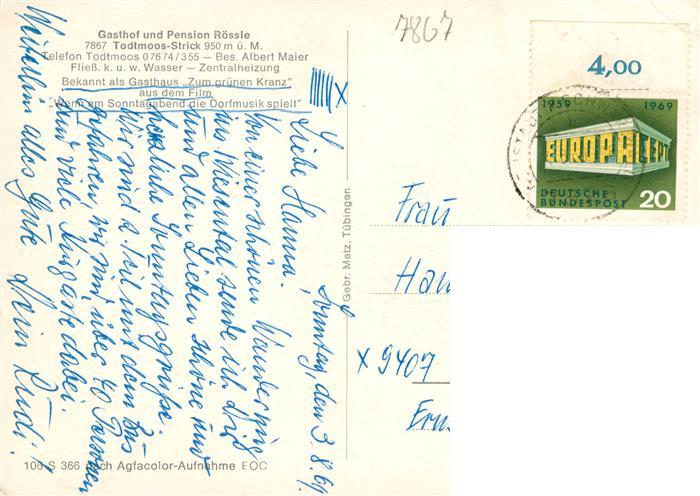 Gasthof und Pension Rössle
7867 Todtmoos-Strick 950 m ü. M.
Telefon Todtmoos 07674/355 — Bes. Albert Maier
Fließ. k. u. w. Wasser — Zentralheizung
Bekannt als Gasthaus "Zum grünen Kranz"
aus dem Film
"Wenn am Sonntagabend die Dorfmusik spielt"
x
Sonntag, den 3.8.69.
Liebe Hanna!
Von einer schönen Wanderung
ins Wiesental sende ich dir
und allen Lieben schöne und
herzliche Sonntagsgrüße.
Wir sind z. Teil mit dem Bus
gefahren, wir sind über 40 Personen
und viele Jüngste dabei.
Weiterhin alles Gute Dein Rudi!
106 S 366 nach Agfacolor-Aufnahme EOC
Gebr. Metz, Tübingen
7867
4,00
1959 1969
EUROPA CEPT
DEUTSCHE
BUNDESPOST 20
Frau
Han
x 9407